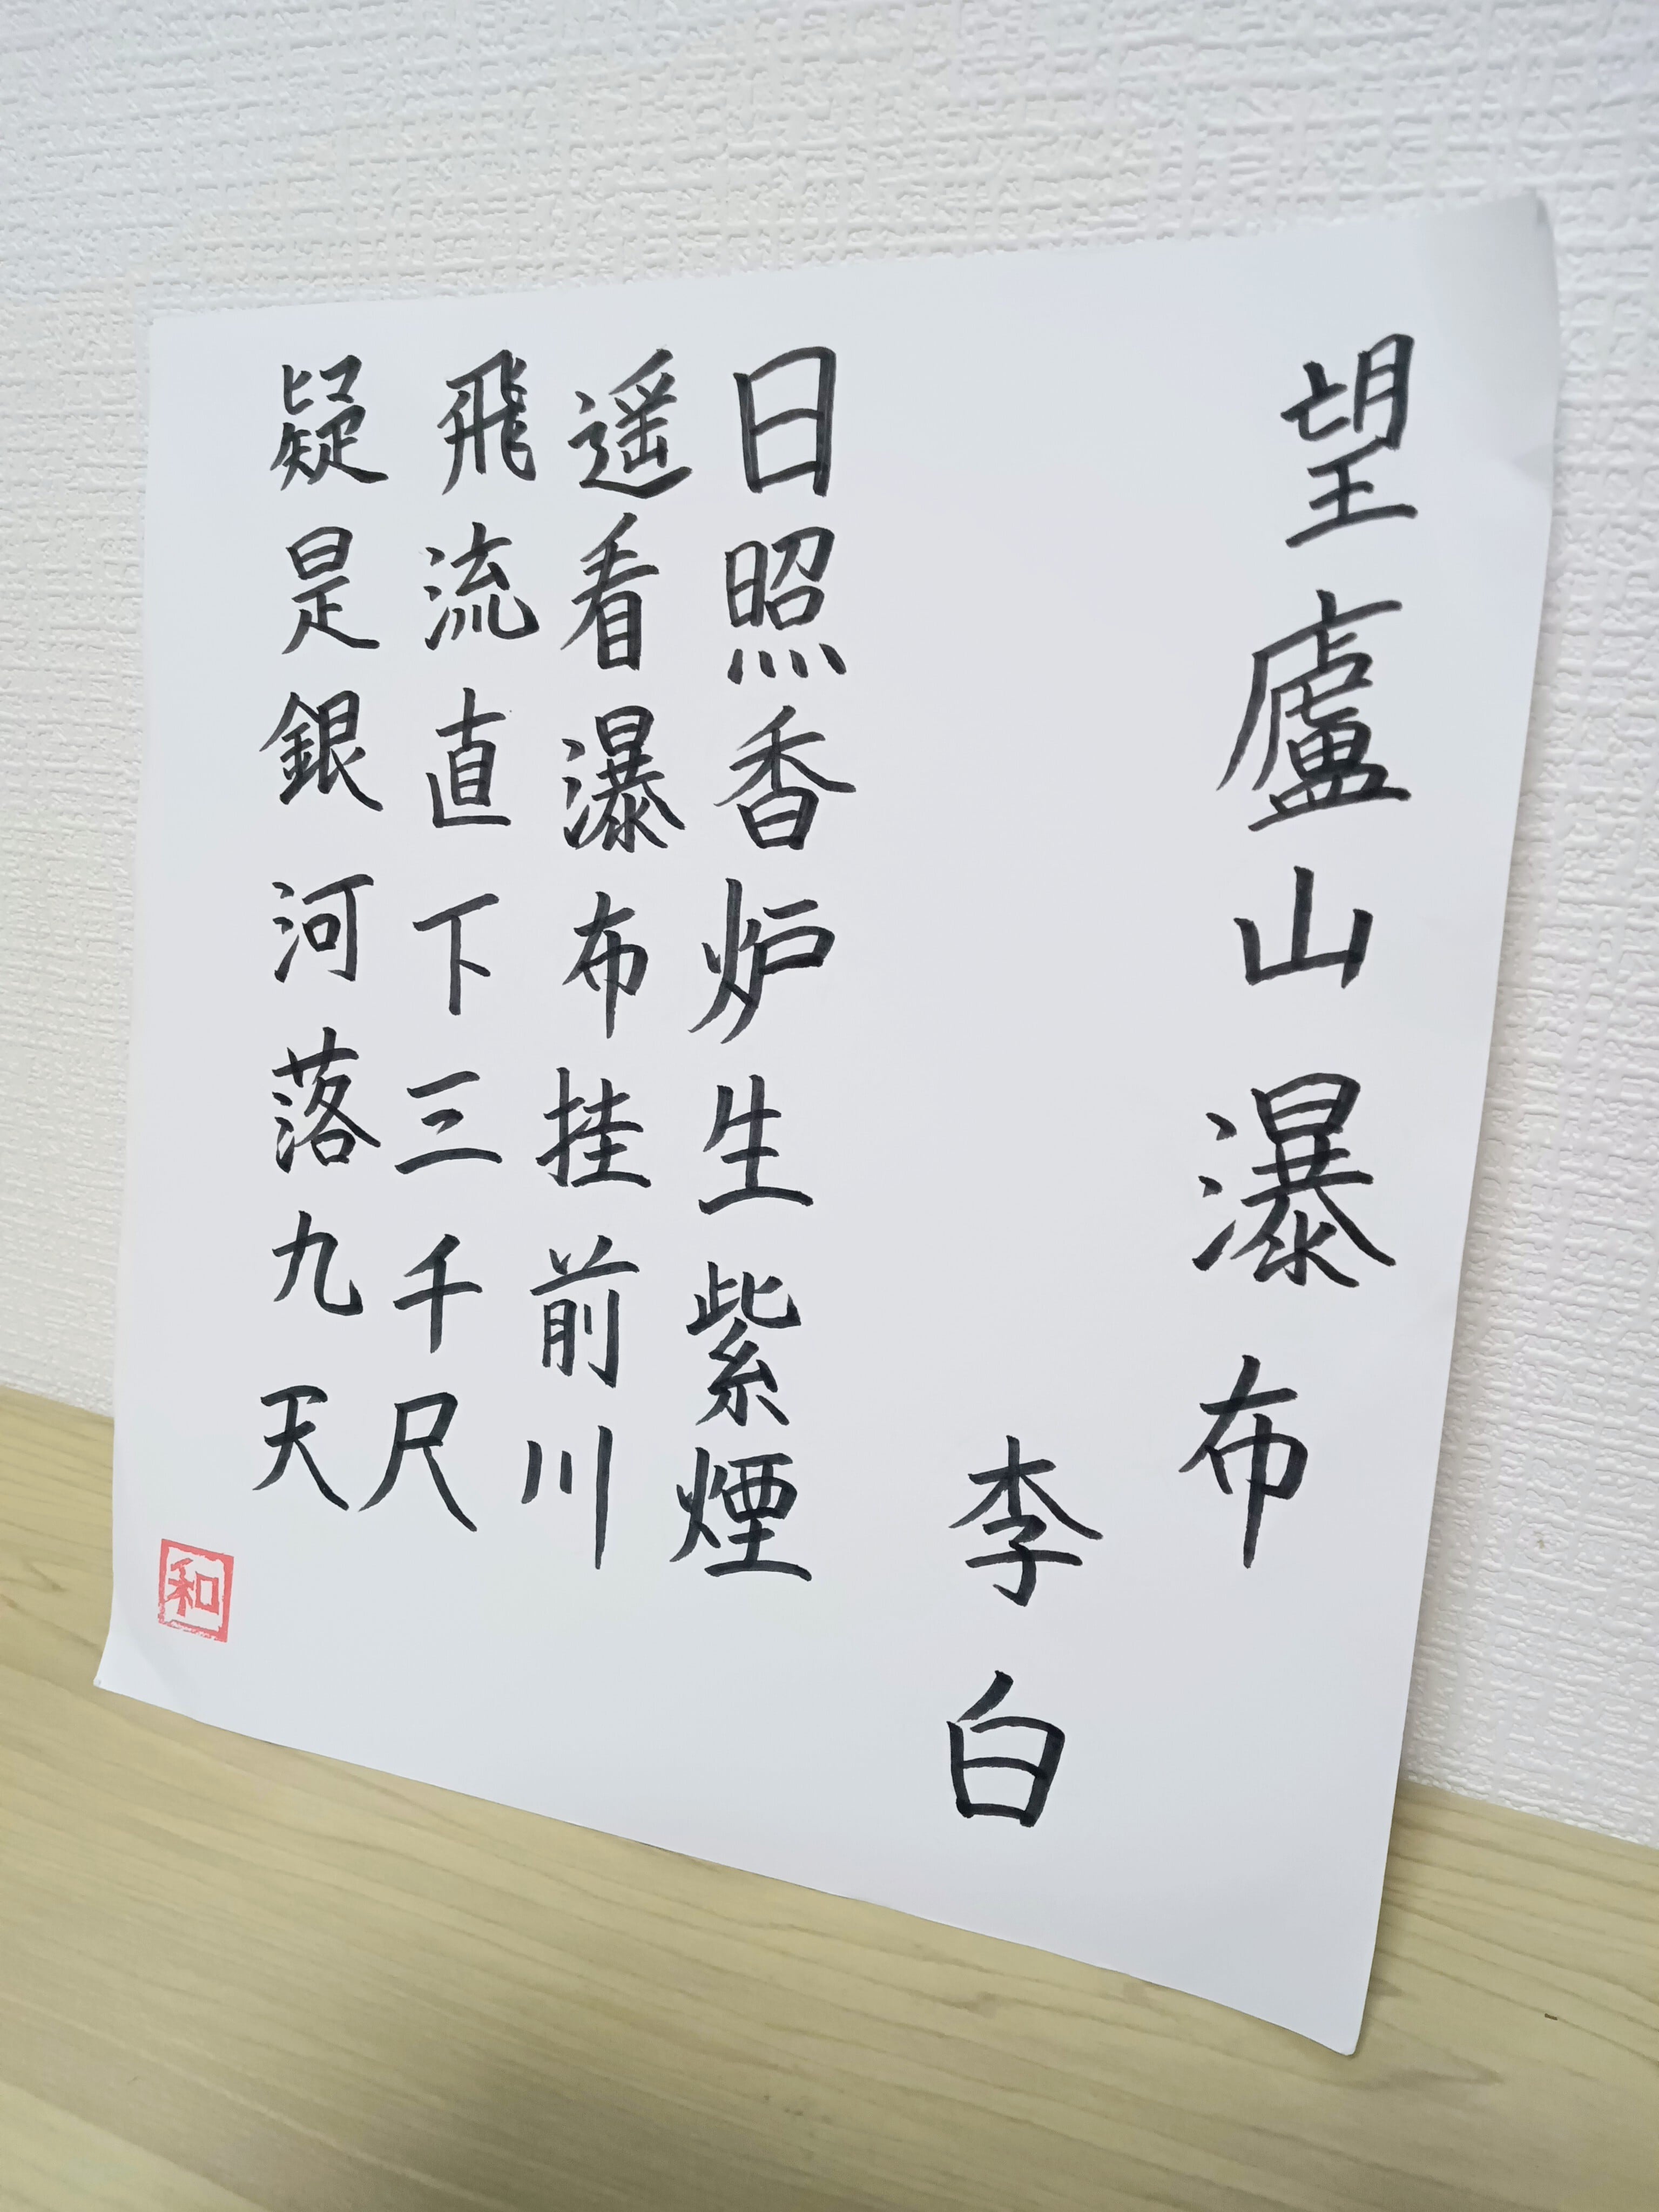 望廬山瀑布
李白
日照香炉生紫煙
遥看瀑布挂前川
飛流直下三千尺
疑是銀河落九天
和